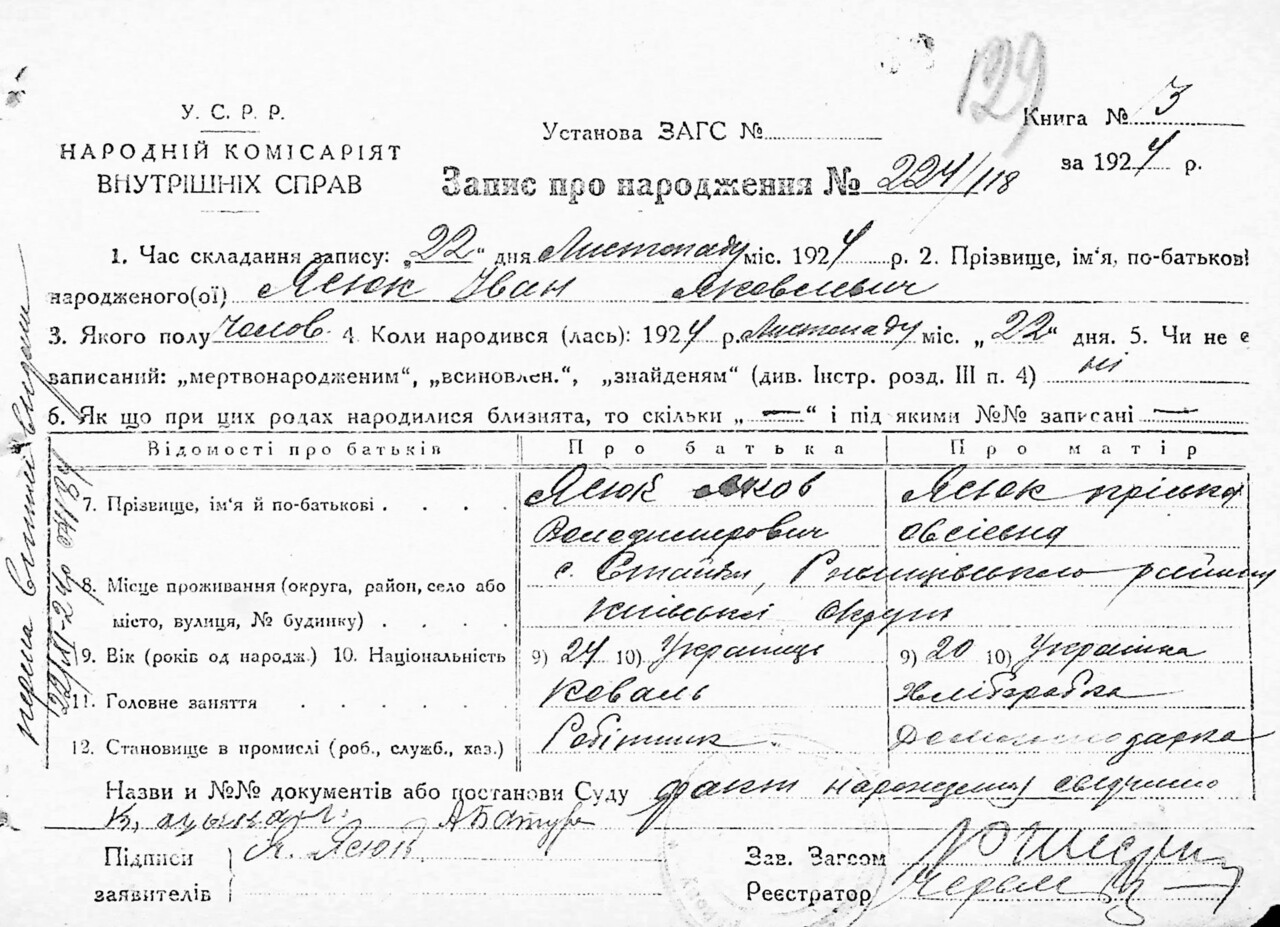 129
У. С. Р. Р.
НАРОДНІЙ КОМІСАРІЯТ
ВНУТРІШНІХ СПРАВ
Установа ЗАГС №
Книга № 3
за 1924 р.
Запис про народження № 224/118
1. Час складання запису: „22“ дня Листопаду міс. 1924 р. 2. Прізвище, ім'я, по-батькові
народженого(ої) Ясюк Іван Яковлевич
3. Якого полу Чолов. 4. Коли народився (лась): 1924 р. Листопаду міс. „22“ дня. 5. Чи не є
записаний: „мертвонародженим“, „всиновлен.“, „знайденям“ (див. Інстр. розд. III п. 4) ні
6. Як що при цих родах народилися близнята, то скільки „—“ і під якими №№ записані —
Відомості про батьків Про батька Про матір
7. Прізвище, ім'я й по-батькові . . . . Ясюк Яков Ясюк Пріська
Володимерович Овсіевна
8. Місце проживання (округа, район, село або с. Стайки, Ржищівського району
місто, вулиця, № будинку) . . . . Київської Округи
9. Вік (років од народж.) 10. Національність 9) 24 10) Украінець 9) 20 10) Украінка
11. Головне заняття . . . . . . Коваль Хліборобка
12. Становище в промислі (роб., служб., хаз.) Робітник Домогосподарка
Назви и №№ документів або постанови Суду факт нарождения
А Батура
Підписи
заявителів
Я. Ясюк
Зав. Загсом
Реєстратор